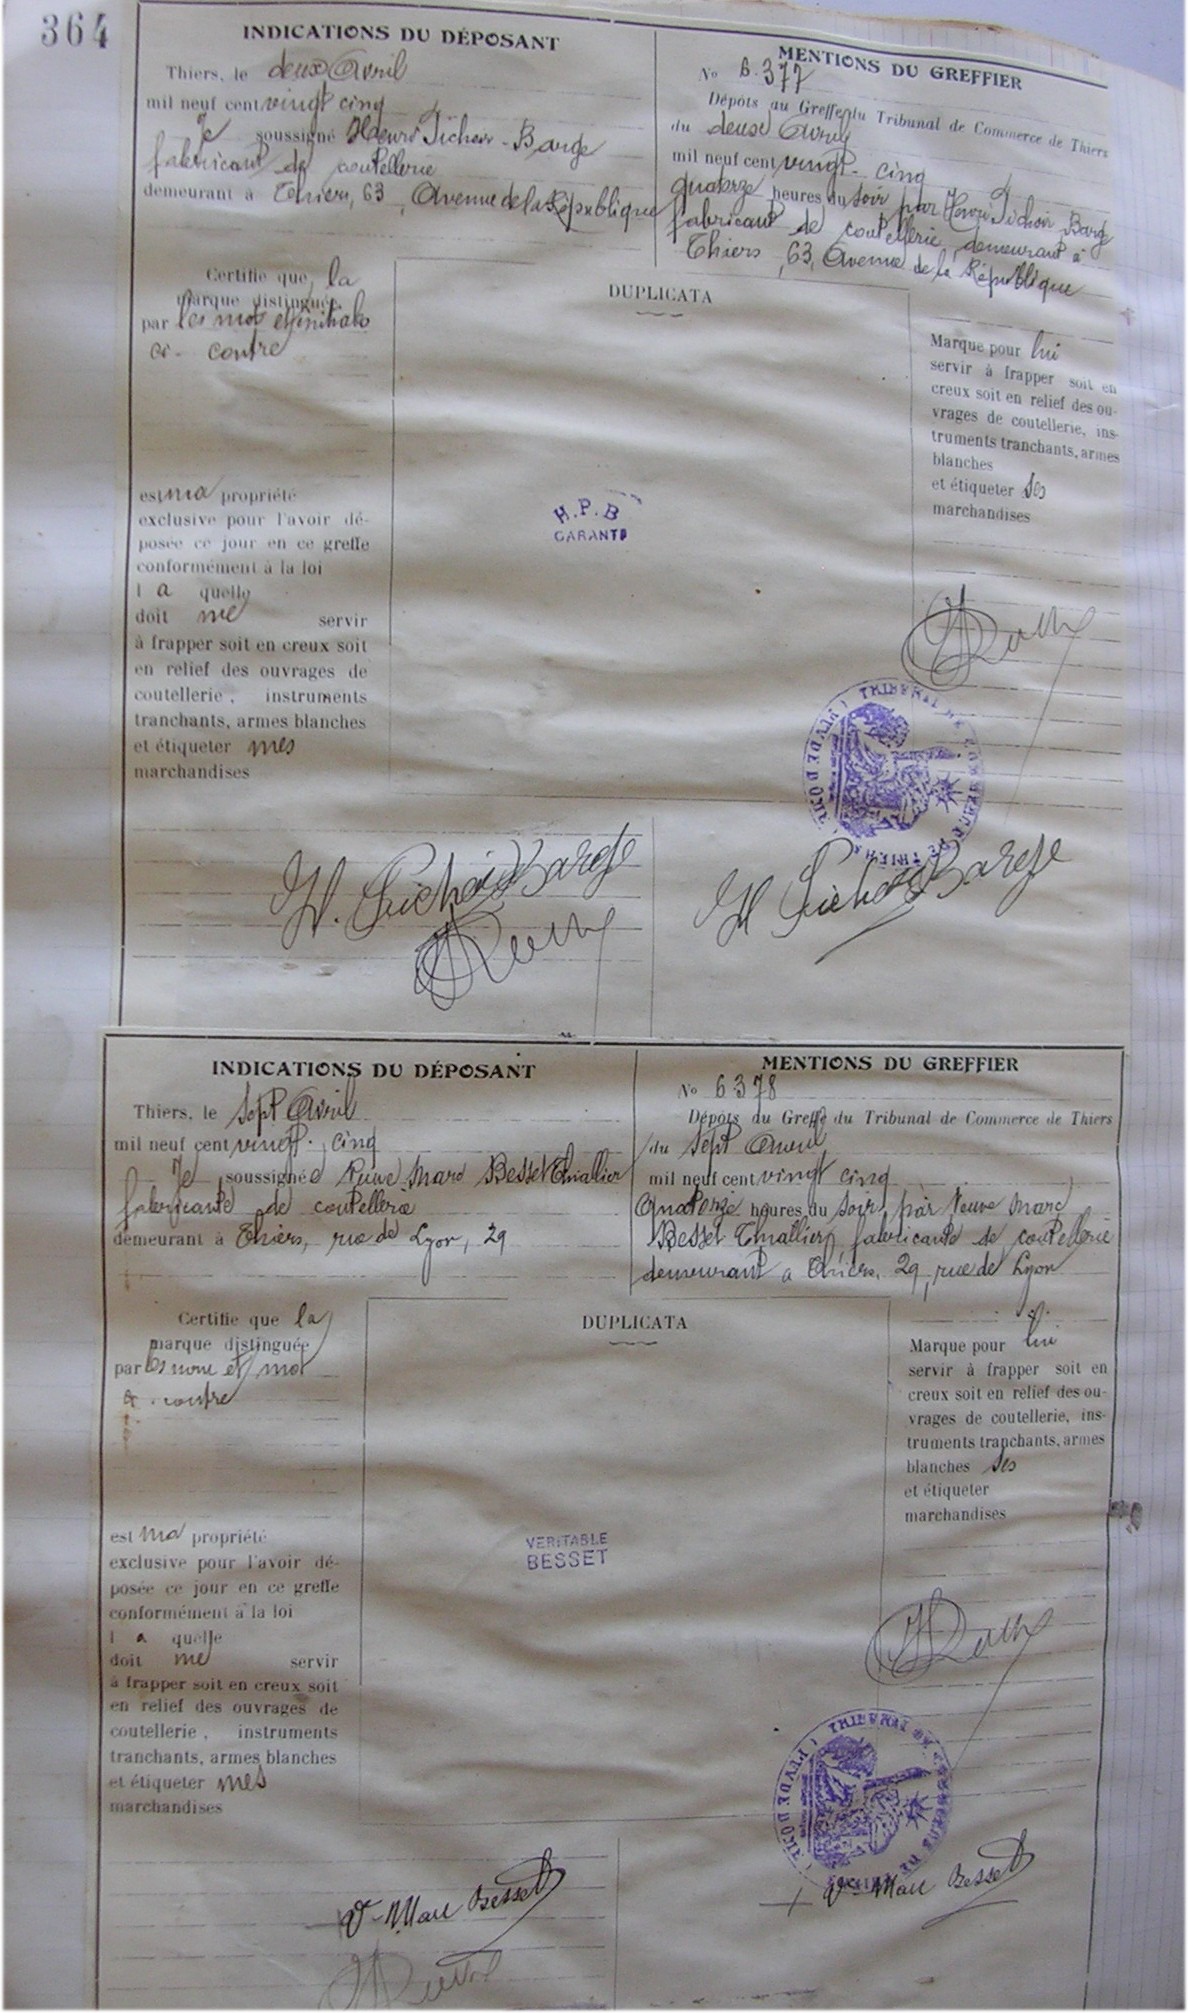 364
INDICATIONS DU DÉPOSANT
Thiers, le deux Avril
mil neuf cent vingt cinq
Je soussigné Henri Pichoir-Barge
fabricant de coutellerie
demeurant à Thiers, 63, Avenue de la République
Certifie que la
marque distinguée
par les mots et initiales
ci-contre
est ma propriété
exclusive pour l'avoir dé-
posée ce jour en ce greffe
conformément à la loi
l a quelle
doit me servir
à frapper soit en creux soit
en relief des ouvrages de
coutellerie, instruments
tranchants, armes blanches
et étiqueter mes
marchandises
MENTIONS DU GREFFIER
No 6.377
Dépôts au Greffe du Tribunal de Commerce de Thiers
du deux Avril
mil neuf cent vingt-cinq
quatorze heures du soir par Henri Pichoir Barge
fabricant de coutellerie, demeurant à
Thiers, 63, Avenue de la République
DUPLICATA
H.P.B
GARANTI
Marque pour lui
servir à frapper soit en
creux soit en relief des ou-
vrages de coutellerie, ins-
truments tranchants, armes
blanches
et étiqueter ses
marchandises
TRIBUNAL DE COMMERCE DE THIERS (PUY DE DOME)
H. Pichoir Barge
H Pichoir Barge
INDICATIONS DU DÉPOSANT
Thiers, le sept Avril
mil neuf cent vingt-cinq
Je soussignée Veuve Marc Besset Thiallier
fabricante de coutellerie
demeurant à Thiers, rue de Lyon, 29
Certifie que la
marque distinguée
par les nom et mot
ci-contre
est ma propriété
exclusive pour l'avoir dé-
posée ce jour en ce greffe
conformément à la loi
l a quelle
doit me servir
à frapper soit en creux soit
en relief des ouvrages de
coutellerie, instruments
tranchants, armes blanches
et étiqueter mes
marchandises
MENTIONS DU GREFFIER
No 6378
Dépôts du Greffe du Tribunal de Commerce de Thiers
du sept Avril
mil neuf cent vingt cinq
Quatorze heures du soir, par Veuve Marc
Besset Thiallier, fabricante de coutellerie
demeurant à Thiers, 29, rue de Lyon
DUPLICATA
VERITABLE
BESSET
Marque pour lui
servir à frapper soit en
creux soit en relief des ou-
vrages de coutellerie, ins-
truments tranchants, armes
blanches ses
et étiqueter
marchandises
TRIBUNAL DE COMMERCE DE THIERS (PUY DE DOME)
Ve Marc Besset
Ve Marc Besset